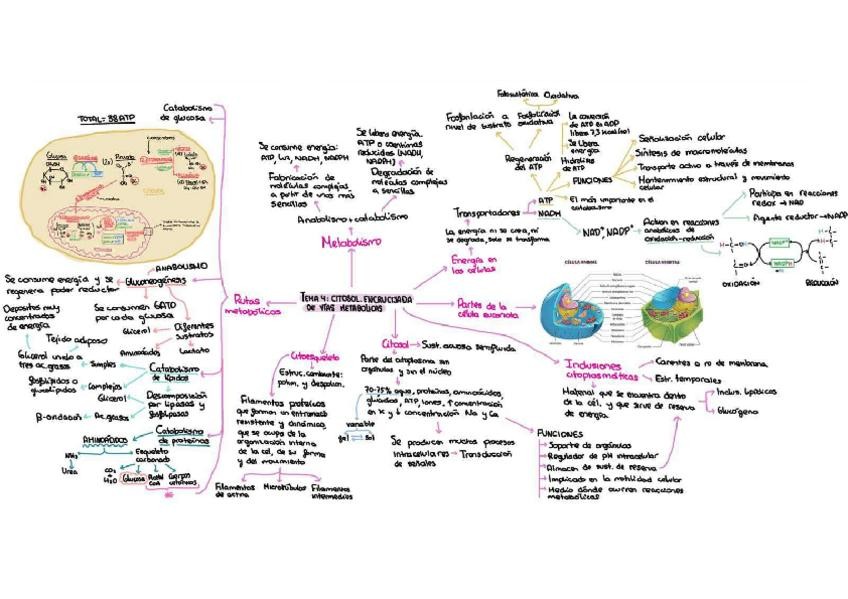 TEMA 4: CITOSOL. ENCRUCIJADA
DE VÍAS METABÓLICAS
Metabolismo
Anabolismo + catabolismo
Fabricación de
moléculas complejas
a partir de unas más
sencillas
Se consume energía:
Degradación de
moléculas complejas
a sencillas
Se libera energía.
ATP o coenzimas
Energía en
las células
La energía ni se crea, ni
se degrada, solo se transforma
Transportadores
ATP
NADH
El más importante en el
catabolismo
Regeneración
del ATP
Fosforilación a
nivel de sustrato
Fosforilación
oxidativa
Fotosintética
Oxidativa
Hidrólisis
de ATP
Se libera
energía
La conversión
de ATP en ADP
libera 7,3 kcal/mol
FUNCIONES
Señalización celular
Síntesis de macromoléculas
Transporte activo a través de membranas
Mantenimiento estructural y movimiento
celular
NAD⁺, NADP⁺
Actúan en reacciones
anabólicas de
oxidación-reducción
Participa en reacciones
redox → NAD
Agente reductor → NADP
OXIDACIÓN
REDUCCIÓN
Partes de la
célula eucariota
CÉLULA ANIMAL
CÉLULA VEGETAL
Inclusiones
citoplasmáticas
Carentes o no de membrana
Estr. temporales
Material que se encuentra dentro
de la cél. y que sirve de reserva
de energía
Inclus. lipídicas
Glucógeno
Citosol
Sust. acuosa semifluida
Parte del citoplasma sin
orgánulos y sin el núcleo
70-75% agua, proteínas, aminoácidos,
glúcidos, ATP, iones, ↑ concentración
variable
gel
sol
Se producen muchos procesos
intracelulares → Transducción
de señales
FUNCIONES
Soporte de orgánulos
Regulador de pH intracelular
Almacen de sust. de reserva
Implicado en la motilidad celular
Medio dónde ocurren reacciones
metabólicas
Citoesqueleto
Estruc. cambiante:
polim. y despolim.
Filamentos proteicos
que forman un entramado
resistente y dinámico,
que se ocupa de la
organización interna
de la cél, de su forma
y del movimiento
Filamentos
de actina
Microtúbulos
Filamentos
intermedios
Rutas
metabólicas
Catabolismo
de glucosa
TOTAL = 38 ATP
Glucosa
Piruvato
ANABOLISMO
Gluconeogénesis
Se consume energía y se
regenera poder reductor
Se consumen 6ATP
por cada glucosa
Diferentes
sustratos
Glicerol
Aminoácidos
Lactato
Catabolismo
de lípidos
Simples
Glicerol unido a
tres ac. grasos
Tejido adiposo
Depósitos muy
concentrados
de energía
Complejos
fosfolípidos o
glucolípidos
Descomposición
por lipasas y
fosfolipasas
Glicerol
Ac. grasos
β-oxidación
Catabolismo
de proteínas
AMINOÁCIDOS
Urea
Esqueleto
carbonado
CO₂
H₂O
Glucosa
Acetil
CoA
Cuerpos
cetónicos